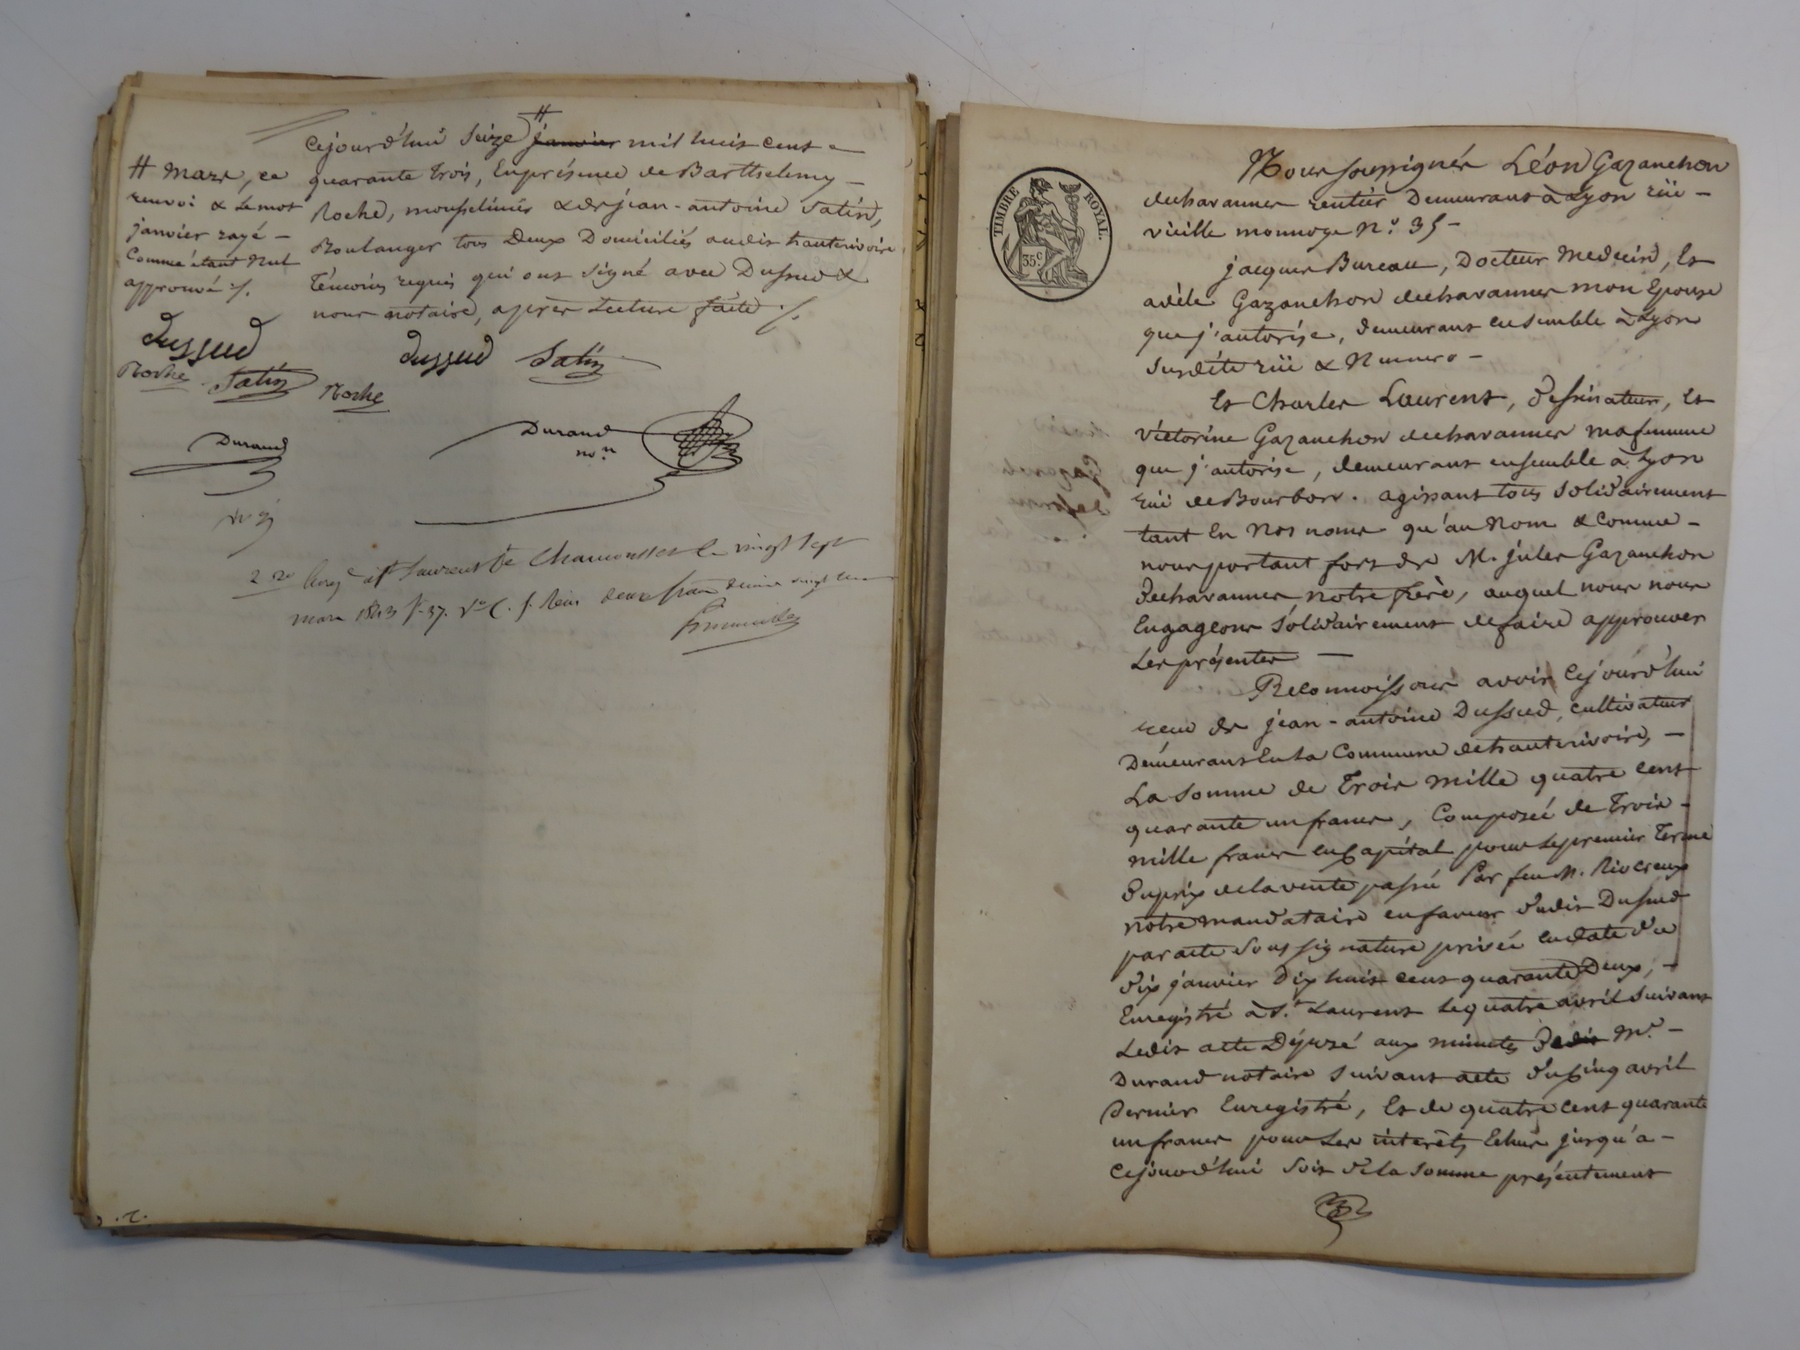 cejourd'hui seize # janvier mil huit cent
quarante trois, En présence de Barthelemy
Roche, mousselinier & de jean-antoine Satin,
Boulanger tous Deux Domiciliés audit hauterivoire
Témoins requis qui ont signé avec Dussud &
nous notaire, après Lecture faite ./.
# Mars, ce
renvoi & Le mot
janvier rayé
Comme étant Nul
approuvé ./.
dussud
Roche Satin
Durand
dussud Satin
Roche
Durand
no.re
Enreg.é à St Laurent de Chamousset le vingt sept
mars 1843 f.37. v.o C. f. Reçu deux francs
TIMBRE ROYAL.
35.c
Nous soussignés Léon Gazanchon
dechavannes rentier Demeurant à Lyon rüe
vieille monnoye N.o 35
jacques Bureau, Docteur Medecin, Et
adèle Gazanchon dechavannes mon Epouse
que j'autorise, demeurant ensemble à Lyon
Susdite rüe & Numero
Et Charles Laurent, dessinateur, Et
Victorine Gazanchon dechavannes ma femme
que j'autorise, demeurant ensemble à Lyon
rüe de Bourbon. agissant tous Solidairement
tant En Nos noms qu'au Nom & Comme
nous portant fort de M. jules Gazanchon
Dechavannes notre frère, auquel nous nous
Engageons Solidairement de faire approuver
Les présentes
Reconnoissons avoir Cejourd'hui
reçu de jean-antoine Dussud, cultivateur
Demeurant En La Commune de hauterivoire,
La Somme de Trois mille quatre cent
quarante un francs, Composée de Trois
mille francs en Capital pour Le premier Terme
du prix de la vente passée Par feu M. Riocreux
notre mandataire en faveur dudit Dussud
par acte Sous signature privée en date du
dix janvier Dix huit cent quarante Deux,
Enregistré à St. Laurent Le quatre avril Suivant
Ledit acte Déposé aux minutes Dudit M.e
Durand notaire Suivant acte du Cinq avril
Dernier Enregistré, Et de quatre cent quarante
un francs pour Les intérêts Echus jusqu'a
Cejourd'hui Soit de la Somme présentement